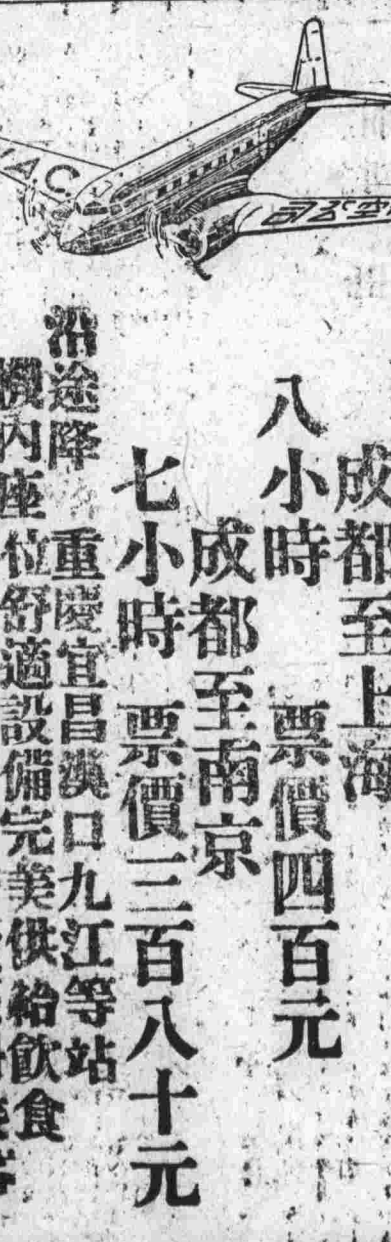 成都至上海
八小時 票價四百元
成都至南京
七小時 票價三百八十元
沿途降 重慶宜昌漢口九江等站
機內座位舒適設備完美供給飲食
AC
空公司